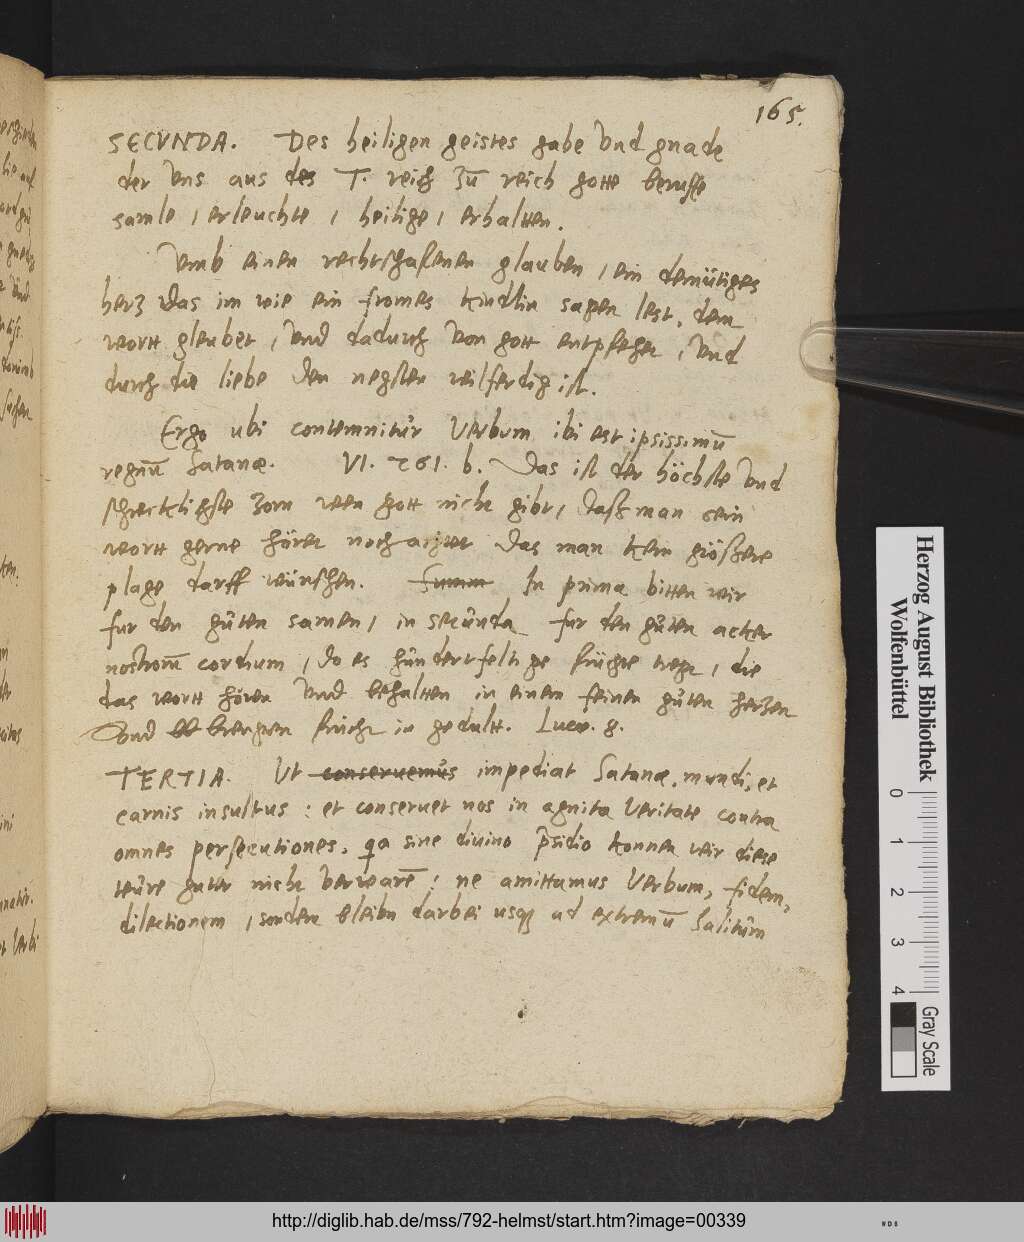 165.
SECVNDA. Des heiligen geistes gabe vnd gnade
der vns aus des T. reich zu reich gotte beruffe
samle / erleuchte / heilige / erhaltten.
Vmb einen rechtschafenen glauben / ein demütiges
herz das im wie ein fromes kindlin sagen lest, dem
wortt gleubet / vnd dadurch von gott entpfeher / vnd
durch die liebe den negsten wilferdig ist.
Ergo ubi contemnitur verbum ibi est ipsissimū
regnū Satanæ. VI. 261. b. Das ist der höchste vnd
schreckligste zorn wen gott nicht gibt / daß man sein
wortt gerne höret noch achtet das man kein größere
plage darff wünschen. Summ In prima bitten wir
fur den guten samen / in secunda fur den guten acker
nostrorū cordium / do es hundertfeltige früchte tregt / die
das wortt hören vnd behaltten in einem feinen guten herzen
vnd brengen frucht in gedultt. Luce. 8.
TERTIA. Ut conseruemus impediat Satanæ, mundi, et
carnis insultus : et conseruet nos in agnita veritate contra
omnes persecutiones, qa sine diuino p̄sidio konnen wir diese
teure guter nicht verwarē : ne amittamus verbum, fidem,
dilectionem / sondern bleibn darbei usq ad extremū halitum
Herzog August Bibliothek
Wolfenbüttel
0 1 2 3 4
Gray Scale
http://diglib.hab.de/mss/792-helmst/start.htm?image=00339